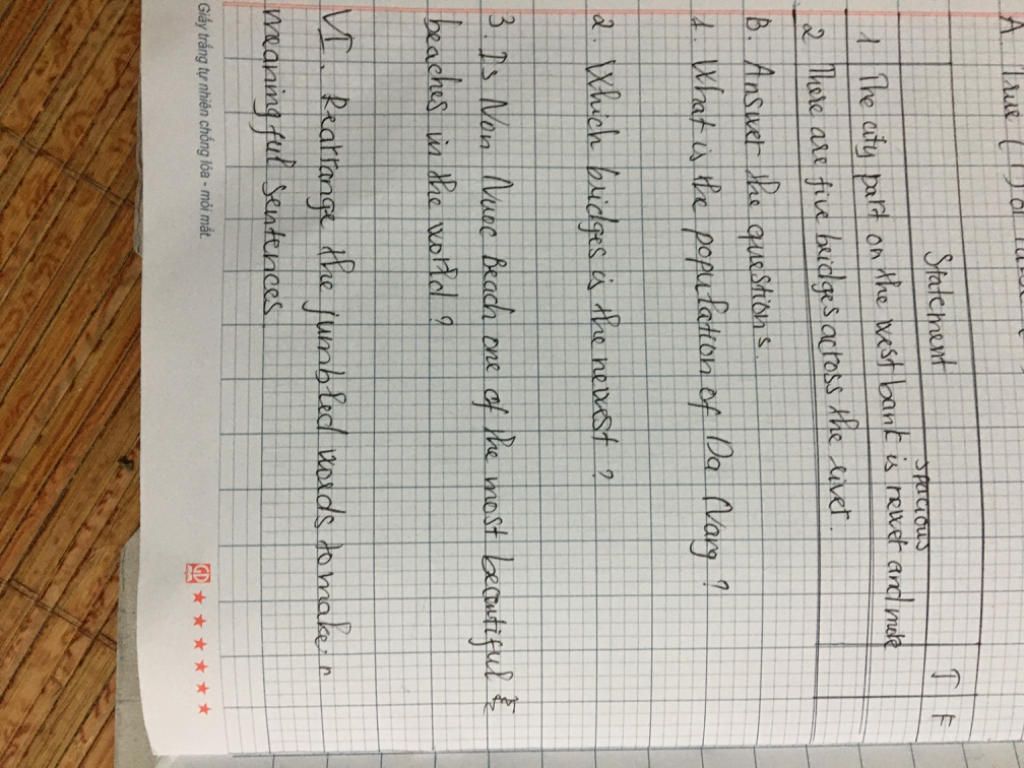 A. True ( ) or
Statement T F
1 The city part on the west bank is newer and more
spacious
2 There are five bridges across the river.
B. Answer the questions.
1. What is the population of Da Nang ?
2. Which bridges is the newest ?
3. Is Non Nuoc Beach one of the most beautiful
beaches in the world ?
VI. Rearrange the jumbled words to make
meaningful sentences
Giấy trắng tự nhiên chống lóa - mỏi mắt.